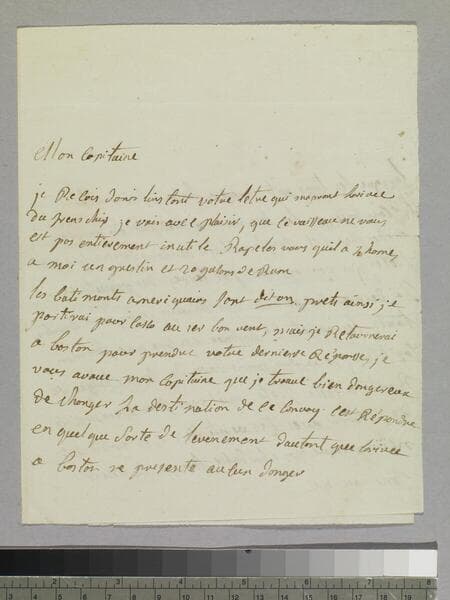 Mon Capitaine
je Recois dans linstant votre letre qui maprend larivée
du je vois avec plaisir, que ce vaisseau ne vous
est pas entierement inutile Rapeles vous quil a 4 homes
a moi un et 20 galons de Rum
les batiments ameriquains sont dit on, prets ainsi je
partirai pour au 1er bon vent, mais je Retournerai
a boston pour prendre votre derniere Réponse, je
vous avoue mon Capitaine que je trouve bien dangereux
de changer la destination de ce Convoy cest Répondre
en quelque sorte de levenement dautant que larivée
a boston ne presente aucun danger